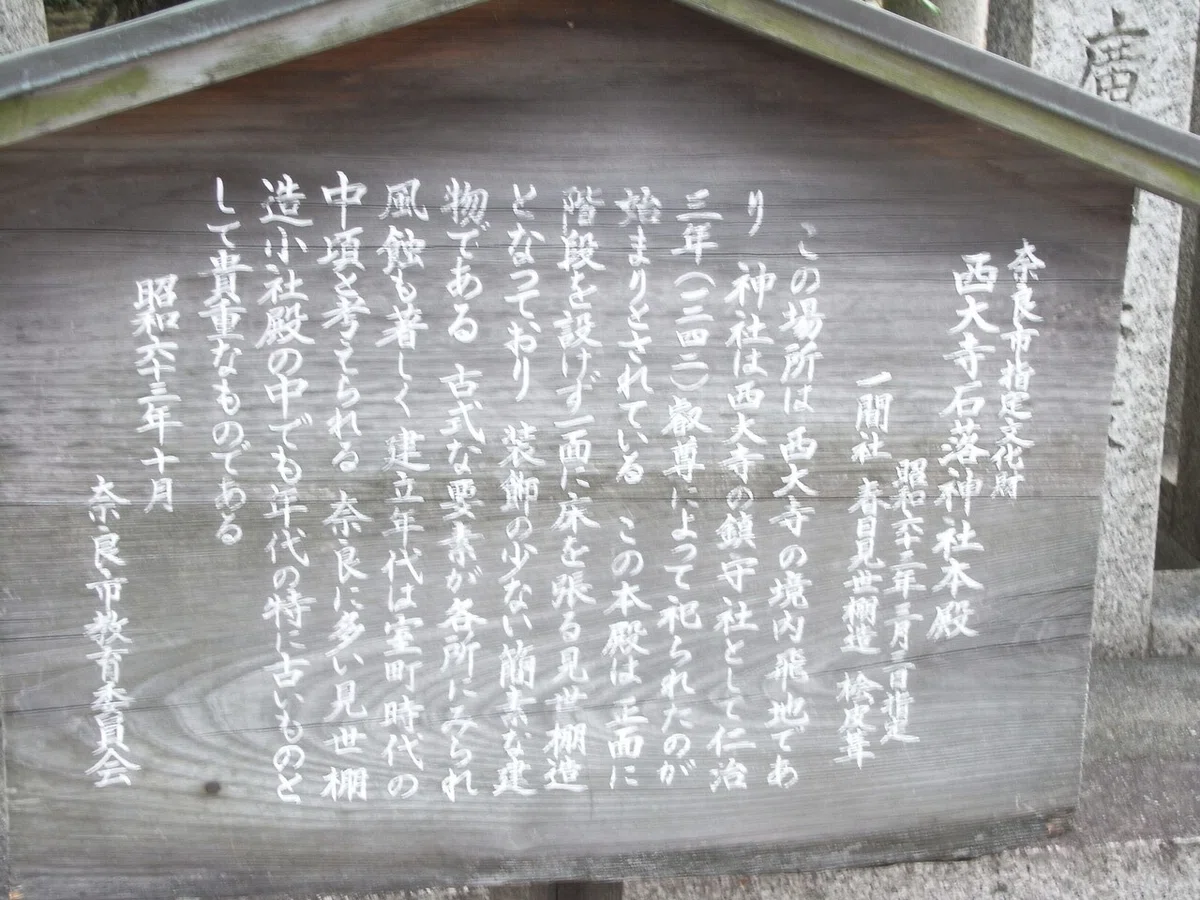 奈良市指定文化財
西大寺石落神社本殿
昭和六十三年三月三日指定
一間社 春日見世棚造 桧皮葺
この場所は西大寺の境内飛地であ
り 神社は西大寺の鎮守社として仁治
三年(一二四二)叡尊によって祀られたのが
始まりとされている この本殿は正面に
階段を設けず一面に床を張る見世棚造
となっており 装飾の少ない簡素な建
物である 古式な要素が各所にみられ
風蝕も著しく建立年代は室町時代の
中頃と考えられる 奈良に多い見世棚
造小社殿の中でも年代の特に古いものと
して貴重なものである
昭和六十三年十月
奈良市教育委員会
廣